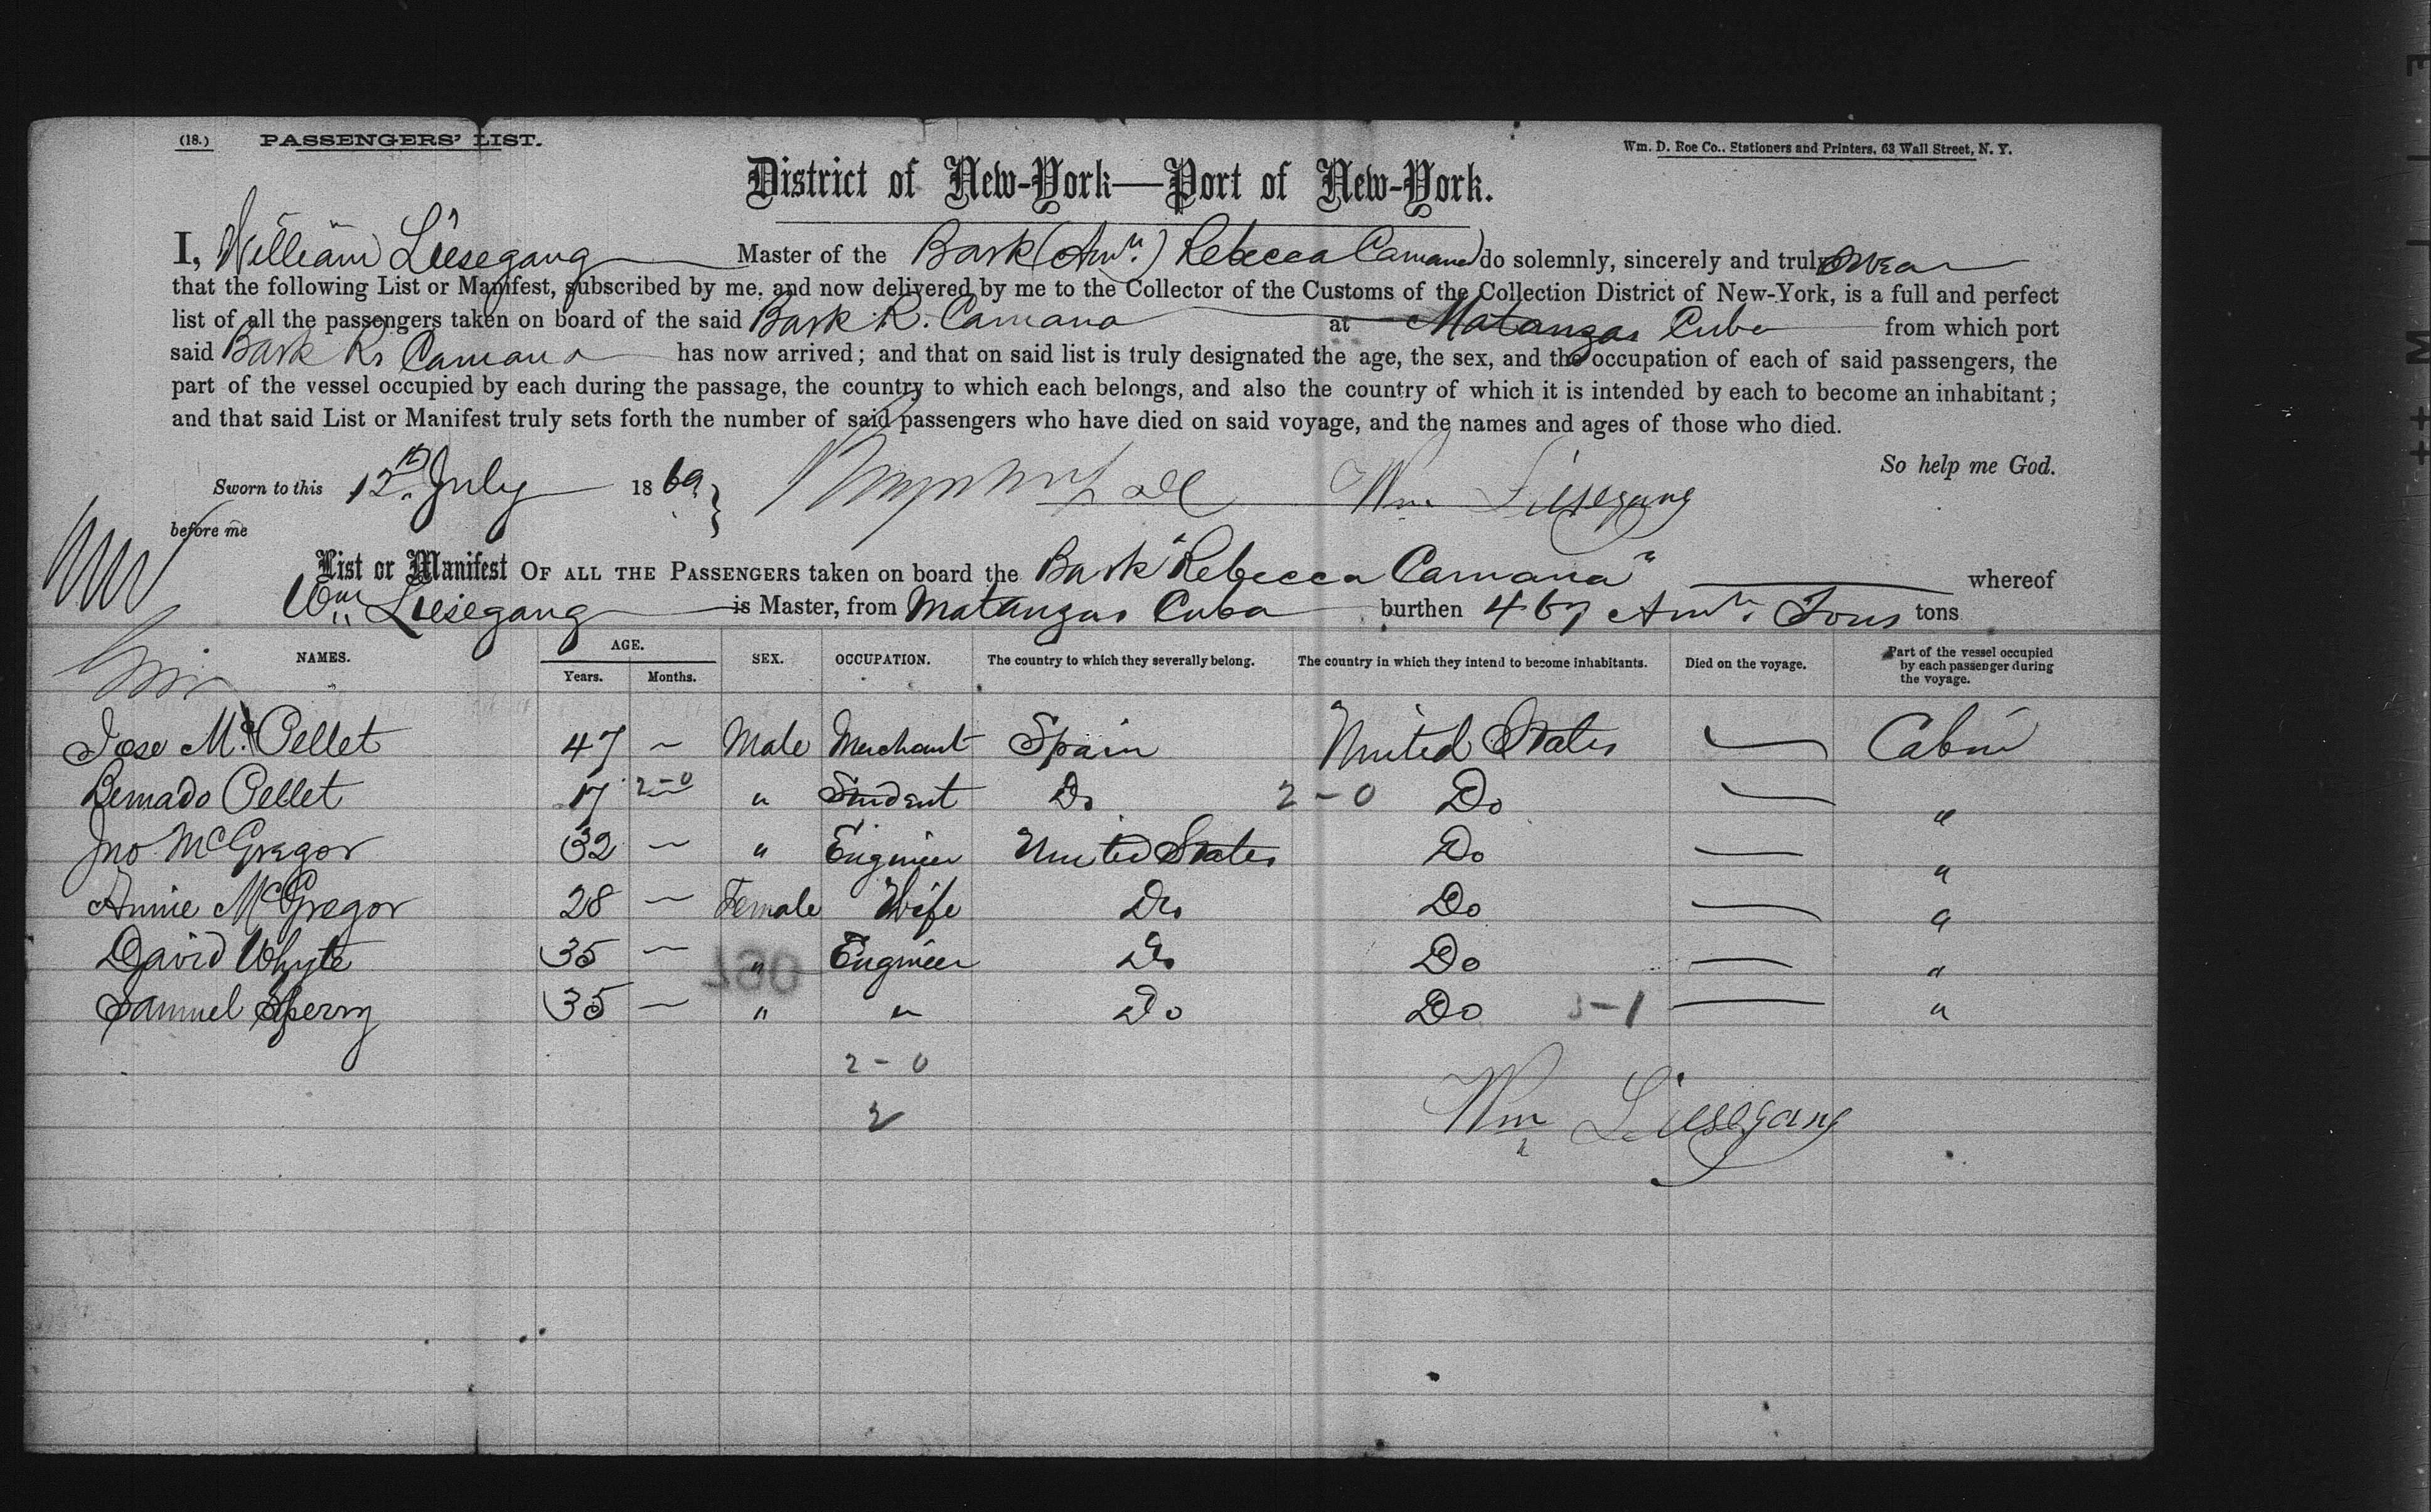 (18.) PASSENGERS' LIST.
Wm. D. Roe Co., Stationers and Printers, 63 Wall Street, N. Y.
District of New-York—Port of New-York.
I, William Liesegang Master of the Bark (Amn.) Rebecca Camana do solemnly, sincerely and truly swear
that the following List or Manifest, subscribed by me, and now delivered by me to the Collector of the Customs of the Collection District of New-York, is a full and perfect
list of all the passengers taken on board of the said Bark R. Camana at Matanzas Cuba from which port
said Bark R. Camana has now arrived; and that on said list is truly designated the age, the sex, and the occupation of each of said passengers, the
part of the vessel occupied by each during the passage, the country to which each belongs, and also the country of which it is intended by each to become an inhabitant;
and that said List or Manifest truly sets forth the number of said passengers who have died on said voyage, and the names and ages of those who died.
So help me God.
Sworn to this 12th July 1869 Wm Liesegang
before me
List or Manifest OF ALL THE PASSENGERS taken on board the Bark "Rebecca Camana" whereof
Wm Liesegang is Master, from Matanzas Cuba burthen 467 Amn. Tons tons
NAMES. AGE. Years. Months. SEX. OCCUPATION. The country to which they severally belong. The country in which they intend to become inhabitants. Died on the voyage. Part of the vessel occupied by each passenger during the voyage.
Jose Ma. Pellet 47 — Male Merchant Spain United States — Cabin
Bernado Pellet 17 2-0 " Student Do 2-0 Do — "
Jno McGregor 32 — " Engineer United States Do — "
Annie McGregor 28 — Female Wife Do Do — "
David Whyte 35 — " Engineer Do Do — "
Samuel Sperry 35 — " " Do Do — "
2-0
2
Wm Liesegang